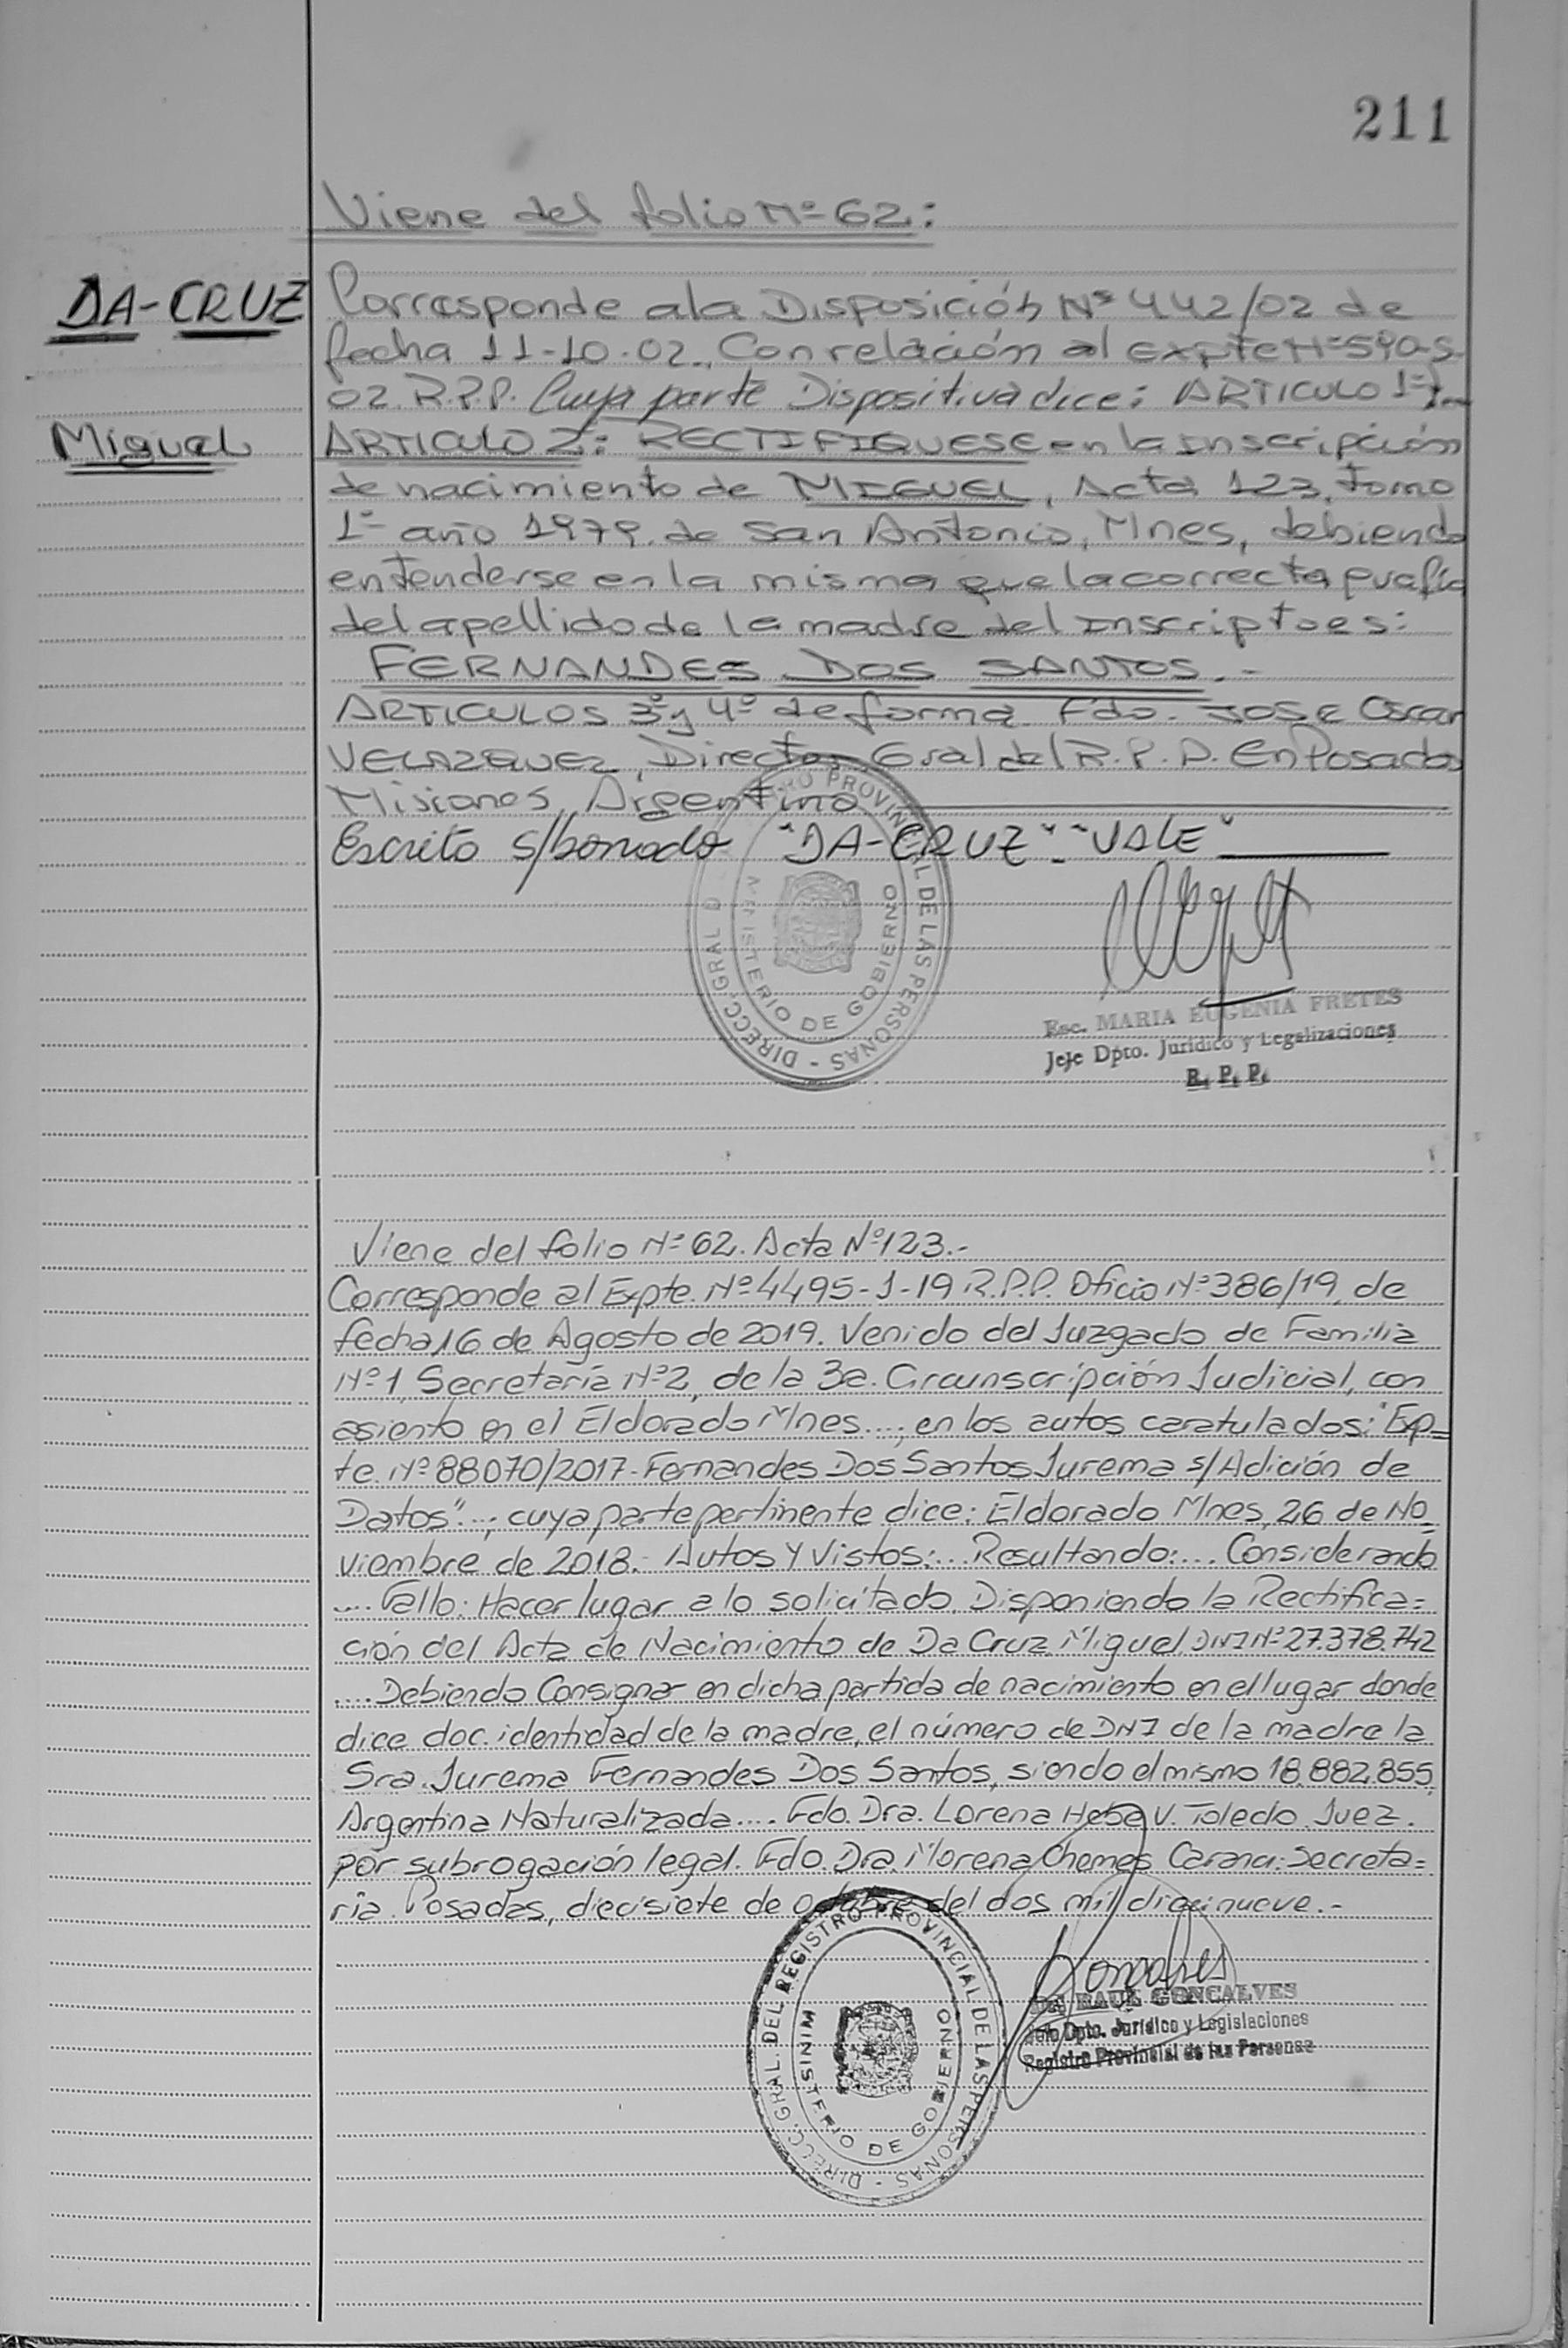 211
Viene del folio Nº 62:
DA-CRUZ
Miguel
Corresponde a la Disposición Nº 442/02 de
fecha 11-10-02., Con relación al Expte Nº 590-S-
02. R.P.P. Cuya parte Dispositiva dice: ARTICULO 1º)...
ARTICULO 2º: RECTIFIQUESE en la Inscripción
de nacimiento de MIGUEL, Acta 123, Tomo
1º año 1979. de San Antonio, Mnes, debiendo
entenderse en la misma que la correcta grafía
del apellido de la madre del Inscripto es:
FERNANDES DOS SANTOS.-
ARTICULOS 3º y 4º de forma. Fdo. JOSE Oscar
VELAZQUEZ, Director Gral del R.P.P. En Posadas
Misiones, Argentina
Escrito s/borrado "DA-CRUZ" "VALE"
DIRECC. GRAL D RO PROVINCIAL DE LAS PERSONAS -
MINISTERIO DE GOBIERNO
Esc. MARIA EUGENIA FRETES
Jefe Dpto. Jurídico y Legalizaciones
R. P. P.
Viene del folio Nº 62. Acta Nº 123.-
Corresponde al Expte. Nº 4495-J-19 R.P.P. Oficio Nº 386/19, de
fecha 16 de Agosto de 2019. Venido del Juzgado de Familia
Nº 1, Secretaría Nº 2, de la 3a. Circunscripción Judicial, con
asiento en el Eldorado Mnes...., en los autos caratulados: "Exp=
te. Nº 88070/2017-Fernandes Dos Santos Jurema s/Adición de
Datos"..., cuya parte pertinente dice: Eldorado Mnes, 26 de No=
viembre de 2018.- Autos Y Vistos:... Resultando:... Considerando
.... Fallo: Hacer lugar a lo solicitado. Disponiendo la Rectifica=
ción del Acta de Nacimiento de Da Cruz Miguel, DNI Nº 27.378.742
.... Debiendo Consignar en dicha partida de nacimiento en el lugar donde
dice doc. identidad de la madre, el número de DNI de la madre la
Sra. Jurema Fernandes Dos Santos, siendo el mismo 18.882.855,
Argentina Naturalizada.... Fdo. Dra. Lorena Hebe V. Toledo. Juez.
por subrogación legal. Fdo. Dra. Morena Chemes Secreta=
ría. Posadas, diecisiete de octubre del dos mil diecinueve.-
DIRECC. GRAL. DEL REGISTRO PROVINCIAL DE LAS PERSONAS -
MINISTERIO DE GOBIERNO
RAUL GONCALVES
Jefe Dpto. Jurídico y Legislaciones
Registro Provincial de las Personas